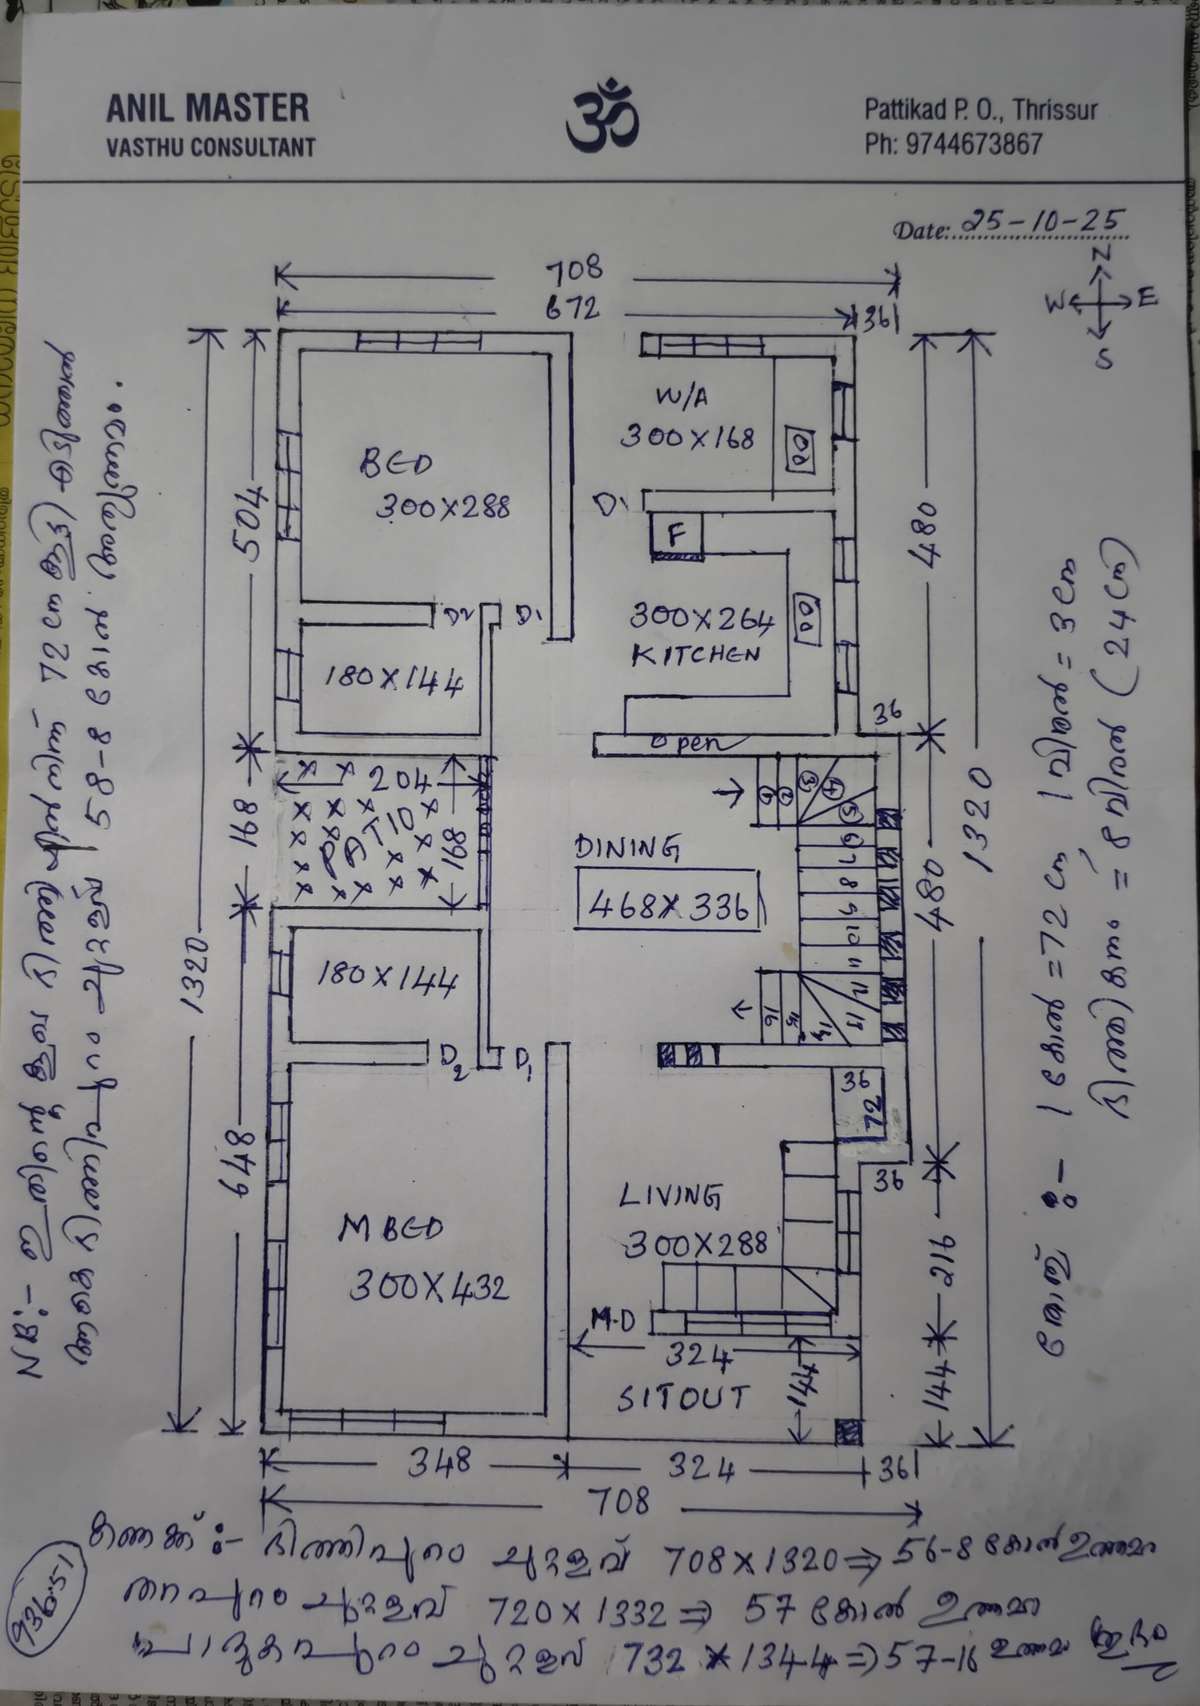 ANIL MASTER
VASTHU CONSULTANT
ॐ
Pattikad P. O., Thrissur
Ph: 9744673867
Date: 25-10-25
N
W E
S
708
672
36
W/A
300X168
BED
300X288
D1
F
D2 D1
300X264
KITCHEN
180X144
36
Open
504
480
1320
204
168
DINING
468X336
1 2 3 4 5 6 7 8 9 10 11 12 13 14 15 16
168
480
1320
180X144
D2 D1
36
72
36
LIVING
300X288
M BED
300X432
648
216
M.D
324
144
SITOUT
144
348 324 36
708
കണക്ക് :- ഭിത്തിപ്പുറം ചുറ്റളവ് 708X1320⇒ 56-8 കോൽ ഉത്തമം
തറപ്പുറം ചുറ്റളവ് 720X1332⇒ 57 കോൽ ഉത്തമം
പാദുകപ്പുറം ചുറ്റളവ് 732X1344⇒57-16 ഉത്തമം
936.51
NB:-
72
58-8 കോൽ
തോത് :- 1 കോൽ =72 cm 1 വിരൽ = 3 cm
ഭിത്തികനം = 8 വിരൽ (24 cm)